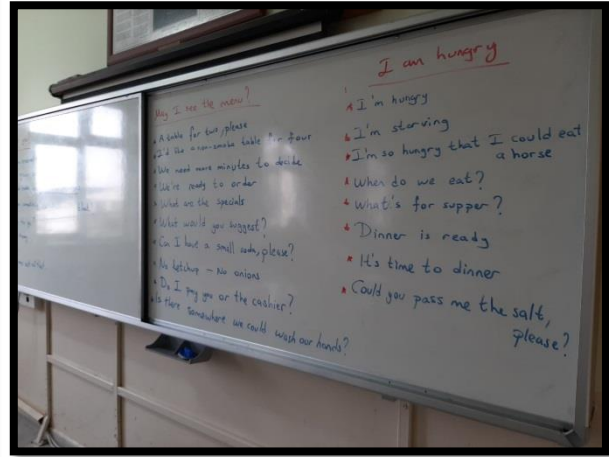 May I see the menu?
A table for two, please
I'd like a non-smoke table for four
We need more minutes to decide
We're ready to order
What are the specials
What would you suggest?
Can I have a small soda, please?
No ketchup – No onions
Do I pay you or the cashier?
Is there somewhere we could wash our hands?
I am hungry
I'm hungry
I'm starving
I'm so hungry that I could eat
a horse
When do we eat?
What's for supper?
Dinner is ready
It's time to dinner
Could you pass me the salt,
please?